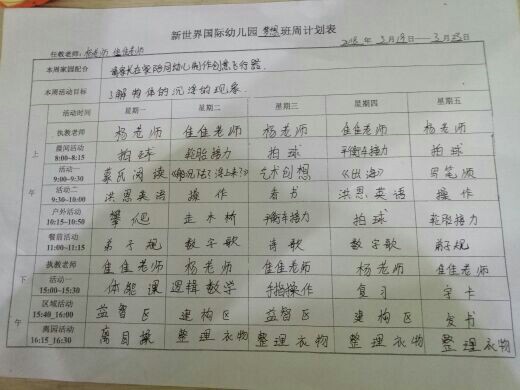 新世界国际幼儿园梦想班周计划表
任教老师：杨老师 佳佳老师 3月19日—3月23日
本周家园配合 请家长在家陪同幼儿制作创意飞行器.
本周活动目标 了解物体的沉浮的现象.
活动时间 星期一 星期二 星期三 星期四 星期五
上午
执教老师 杨老师 佳佳老师 杨老师 佳佳老师 杨老师
晨间活动 8:00~8:15 拍球 轮胎接力 拍球 平衡车接力 拍球
活动一 9:00~9:30 蒙氏阅读 艺术创想 《出海》 写笔顺
活动二 9:30~10:00 洪恩英语 操作 看书 洪恩英语 操作
户外活动 10:15~10:50 攀爬 走木桥 平衡车接力 拍球 轮胎接力
餐前活动 11:00~11:15 弟子规 数字歌 诗歌 数字歌 弟子规
下午
执教老师 佳佳老师 杨老师 佳佳老师 杨老师 佳佳老师
活动一 15:00~15:30 体能课 逻辑数学 手指操作 复习 字卡
区域活动 15:40_16:00 益智区 建构区 益智区 建构区 看书
离园活动 16:15_16:30 整理衣物 整理衣物 整理衣物 整理衣物